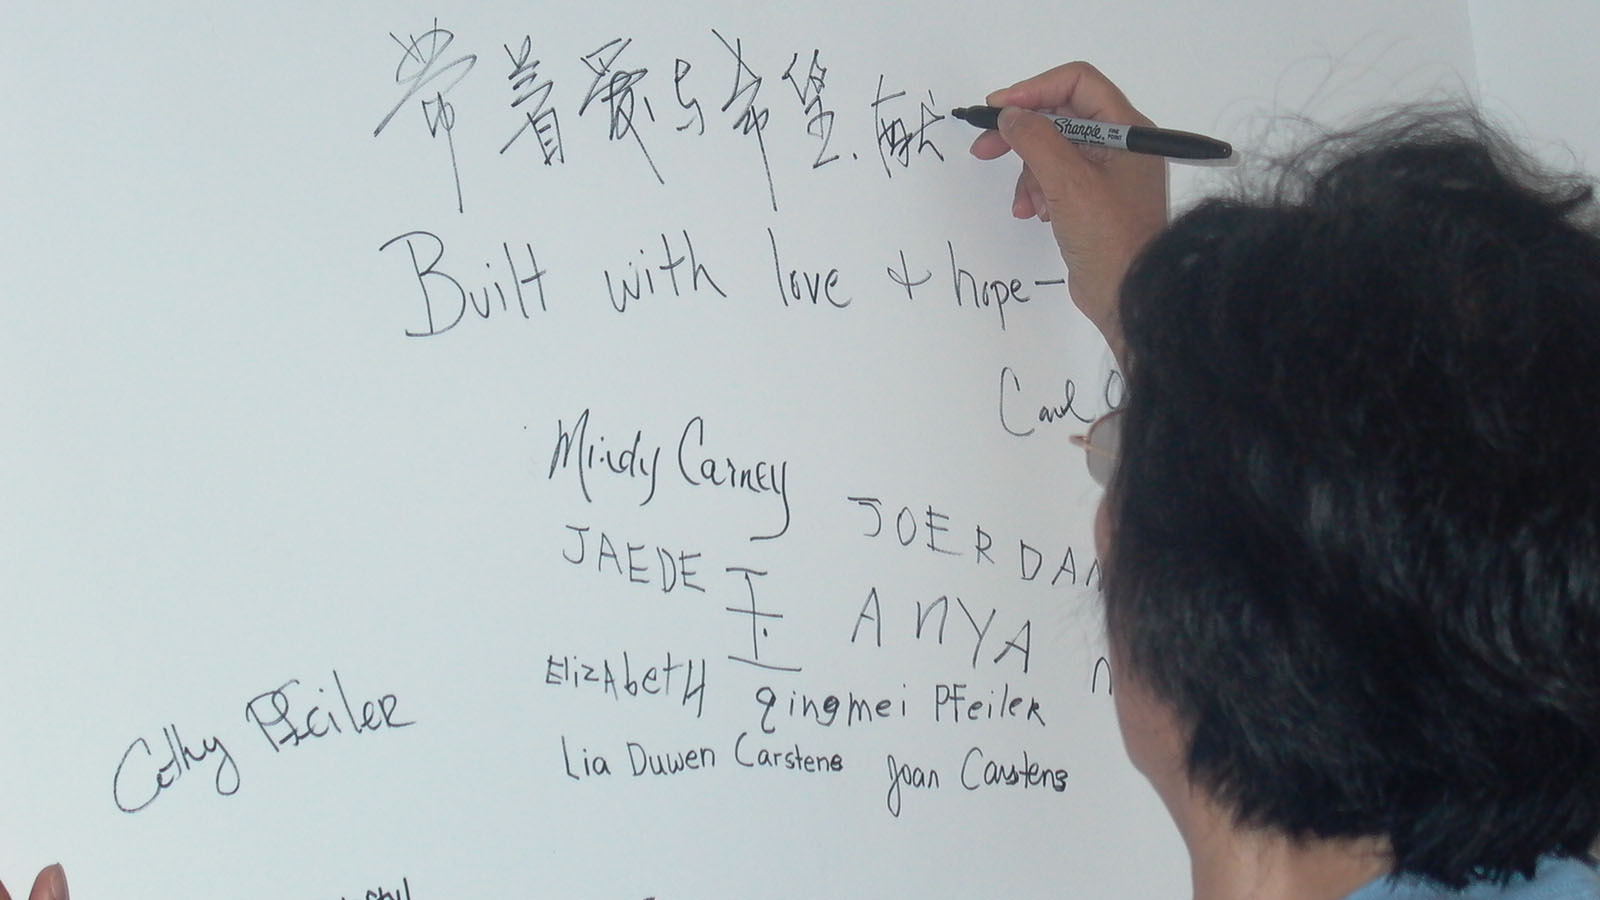 带着爱与希望.献
Sharpie. FINE POINT
Built with love & hope—
Carl
Mindy Carney
JOERDAN
JAEDE 王
ANYA
ElizAbetH
qingmei Pfeiler
Cathy Pfeiler
Lia Duwen Carstens
Joan Carstens